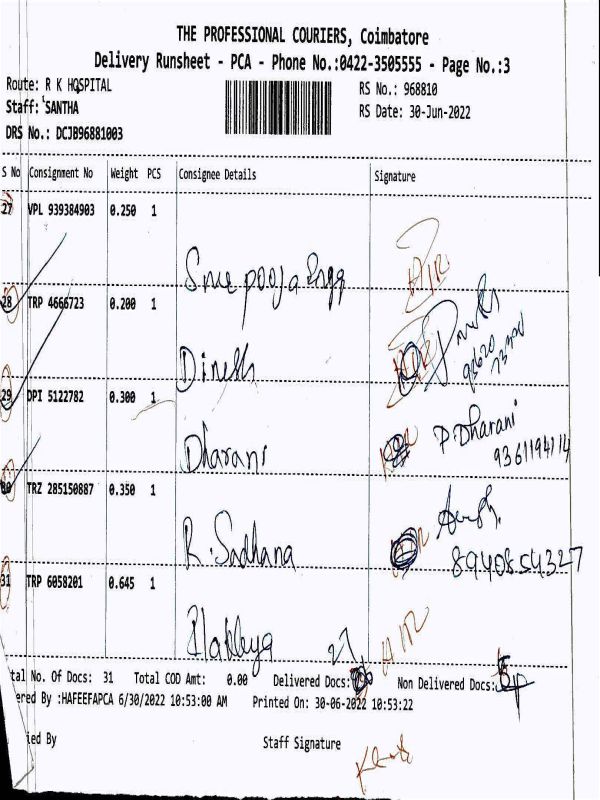 THE PROFESSIONAL COURIERS, Coimbatore
Delivery Runsheet - PCA - Phone No.:0422-3505555 - Page No.:3
Route: R K HOSPITAL
RS No.: 968810
Staff: SANTHA
RS Date: 30-Jun-2022
DRS No.: DCJB96881003
S No Consignment No Weight PCS Consignee Details Signature
27 VPL 939384903 0.250 1
28 TRP 4666723 0.200 1
Dinesh
29 DPI 5122782 0.300 1
Dharani P.Dharani
9361194114
30 TRZ 285150887 0.350 1
R. Sadhana
8940854327
31 TRP 6058201 0.645 1
tal No. Of Docs: 31 Total COD Amt: 0.00 Delivered Docs: Non Delivered Docs:
ered By :HAFEEFAPCA 6/30/2022 10:53:00 AM Printed On: 30-06-2022 10:53:22
ied By Staff Signature